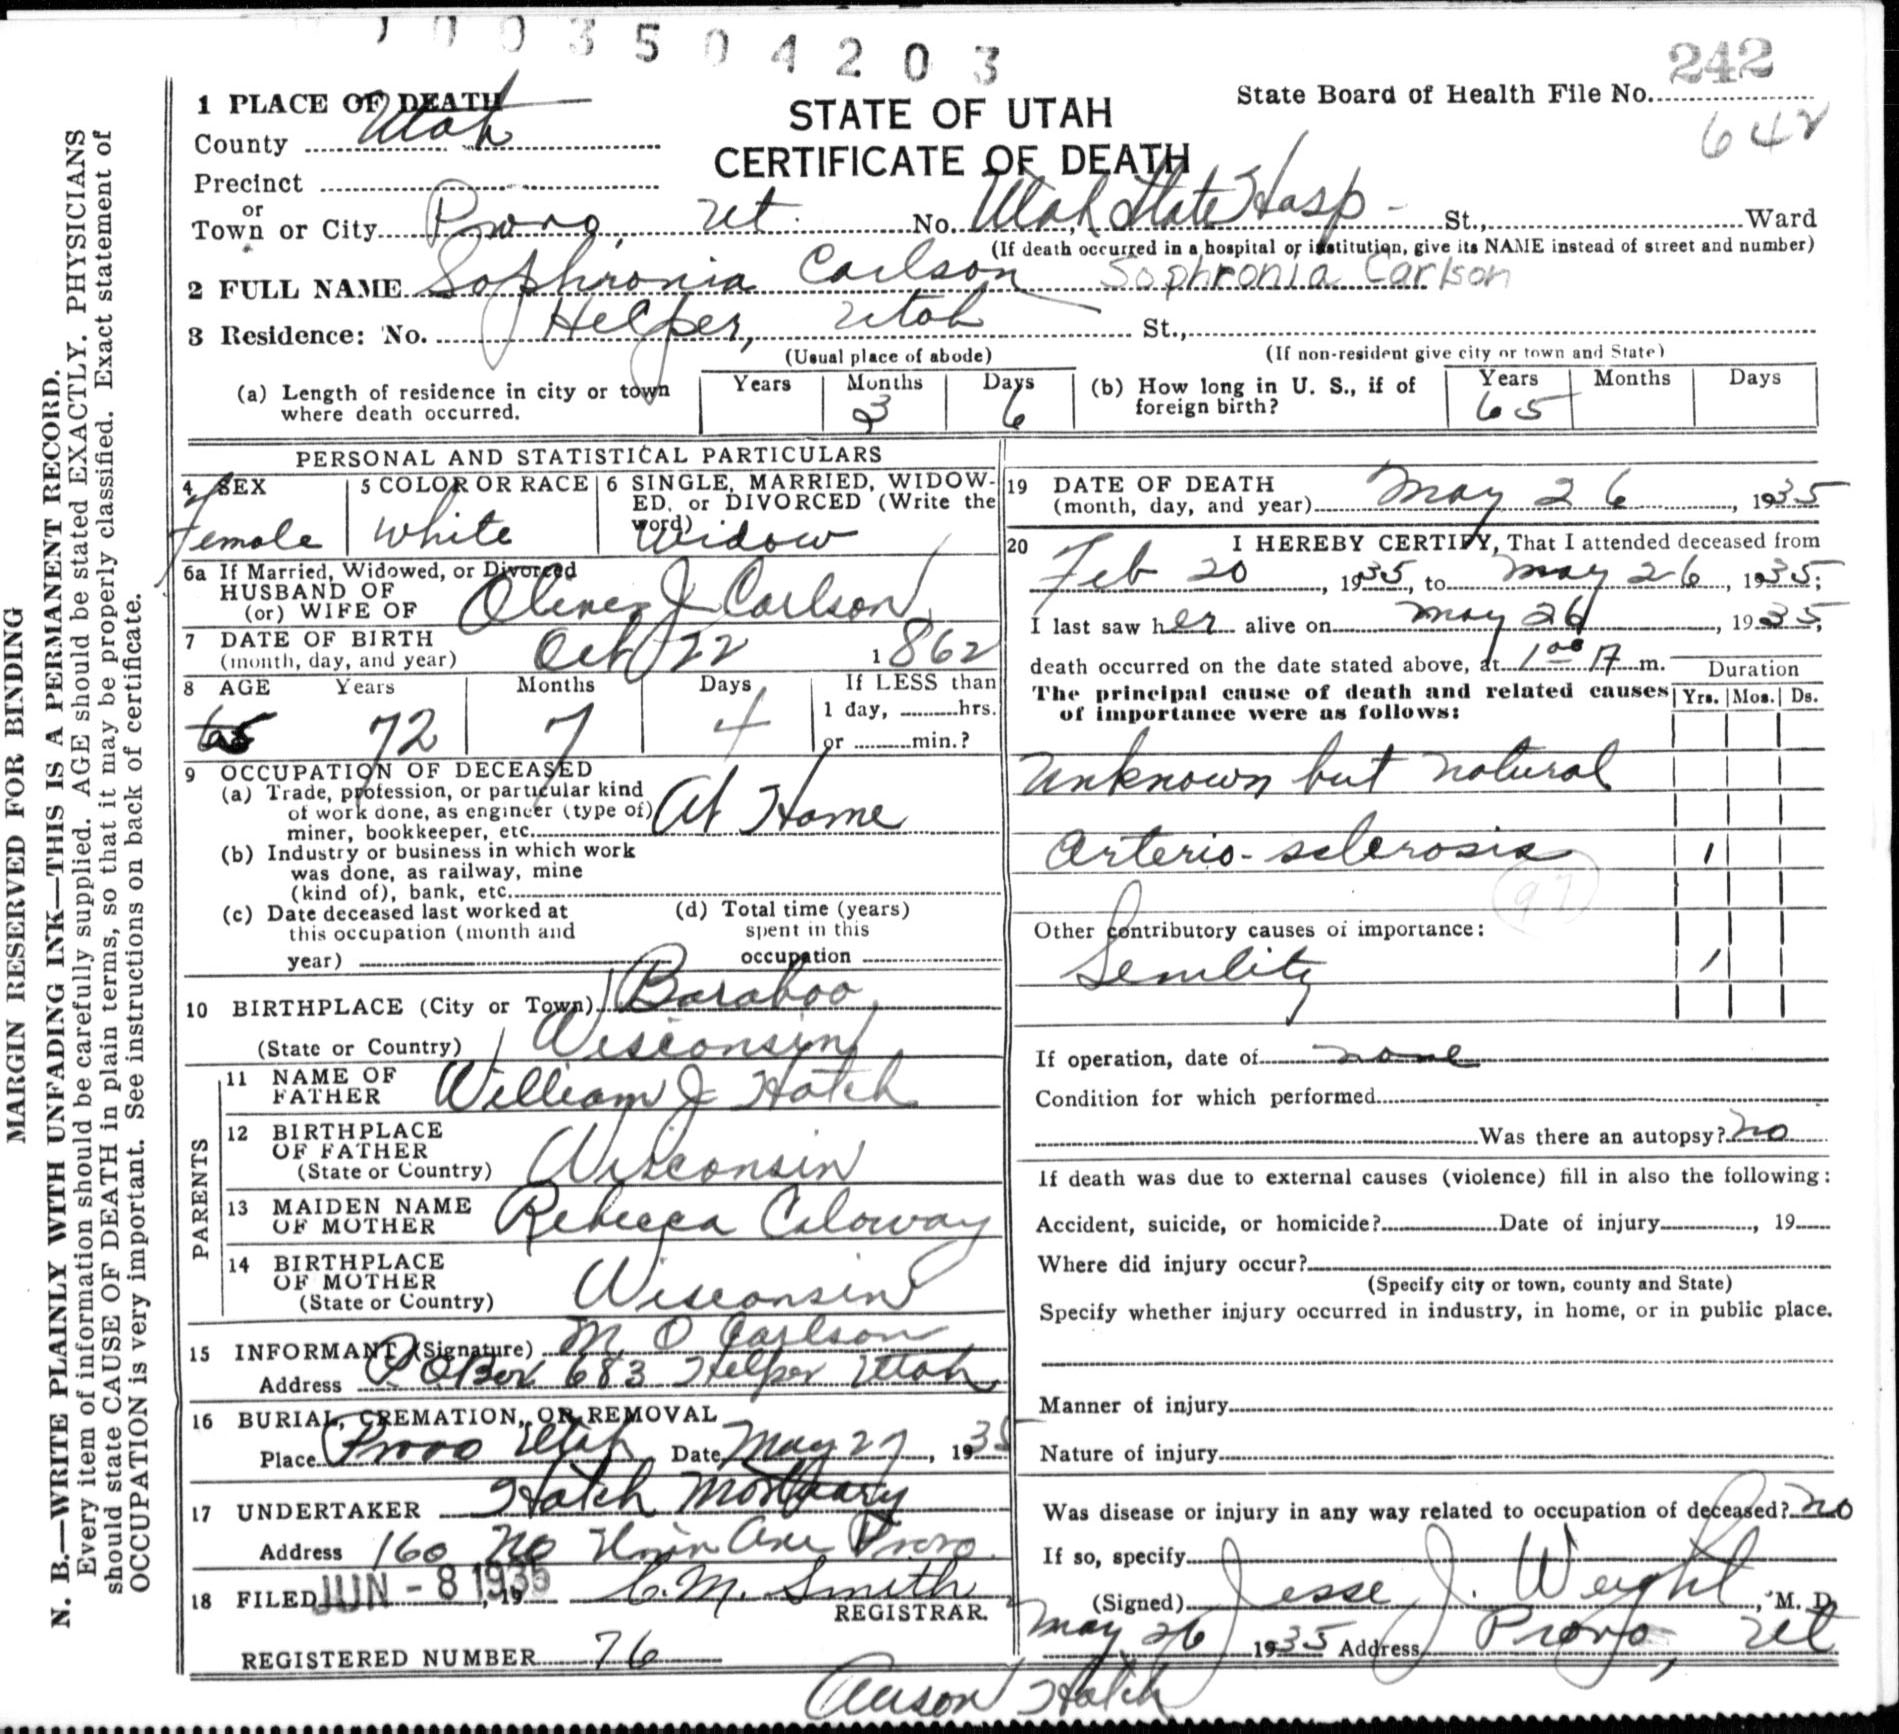 1003504203
242
642
1 PLACE OF DEATH
STATE OF UTAH
CERTIFICATE OF DEATH
State Board of Health File No.
County Utah
Precinct
or
Town or City Provo, Ut. No. Utah State Hosp - St., Ward
(If death occurred in a hospital or institution, give its NAME instead of street and number)
2 FULL NAME Sophronia Carlson Sophronia Carlson
3 Residence: No. Helper, Utah St.,
(Usual place of abode) (If non-resident give city or town and State)
(a) Length of residence in city or town where death occurred. Years Months 3 Days 6
(b) How long in U. S., if of foreign birth? Years 65 Months Days
PERSONAL AND STATISTICAL PARTICULARS
4 SEX Female
5 COLOR OR RACE White
6 SINGLE, MARRIED, WIDOW-
ED, or DIVORCED (Write the
word) Widow
6a If Married, Widowed, or Divorced
HUSBAND OF
(or) WIFE OF J Carlson
7 DATE OF BIRTH
(month, day, and year) Oct 22 1862
8 AGE Years Months Days If LESS than
65 72 7 4 1 day, hrs.
or min.?
9 OCCUPATION OF DECEASED
(a) Trade, profession, or particular kind
of work done, as engineer (type of)
miner, bookkeeper, etc. At Home
(b) Industry or business in which work
was done, as railway, mine
(kind of), bank, etc.
(c) Date deceased last worked at
this occupation (month and
year)
(d) Total time (years)
spent in this
occupation
10 BIRTHPLACE (City or Town) Baraboo
(State or Country) Wisconsin
PARENTS
11 NAME OF
FATHER William J Hatch
12 BIRTHPLACE
OF FATHER
(State or Country) Wisconsin
13 MAIDEN NAME
OF MOTHER Rebecca Caloway
14 BIRTHPLACE
OF MOTHER
(State or Country) Wisconsin
15 INFORMANT (Signature) M. O Carlson
Address P O Box 683 Helper Utah
16 BURIAL, CREMATION, OR REMOVAL
Place Provo Utah Date May 27, 1935
17 UNDERTAKER Hatch Mortuary
Address 160 No Univ Ave Provo.
18 FILED JUN - 8 1935, 19 C. M. Smith
REGISTRAR.
REGISTERED NUMBER 76
19 DATE OF DEATH
(month, day, and year) May 26, 1935
20 I HEREBY CERTIFY, That I attended deceased from
Feb 20, 1935, to May 26, 1935;
I last saw her alive on May 26, 1935;
death occurred on the date stated above, at 1 00 A m. Duration
The principal cause of death and related causes
of importance were as follows: Yrs. Mos. Ds.
Unknown but natural
Arterio-sclerosis 1
97
Other contributory causes of importance:
Senility 1
If operation, date of none
Condition for which performed
Was there an autopsy? No
If death was due to external causes (violence) fill in also the following:
Accident, suicide, or homicide? Date of injury, 19
Where did injury occur?
(Specify city or town, county and State)
Specify whether injury occurred in industry, in home, or in public place.
Manner of injury
Nature of injury
Was disease or injury in any way related to occupation of deceased? no
If so, specify
(Signed) Jesse J. Weight, M. D.
May 26 1935 Address Provo, Ut
Anson Hatch
MARGIN RESERVED FOR BINDING
N. B.—WRITE PLAINLY WITH UNFADING INK—THIS IS A PERMANENT RECORD.
Every item of information should be carefully supplied. AGE should be stated EXACTLY. PHYSICIANS
should state CAUSE OF DEATH in plain terms, so that it may be properly classified. Exact statement of
OCCUPATION is very important. See instructions on back of certificate.